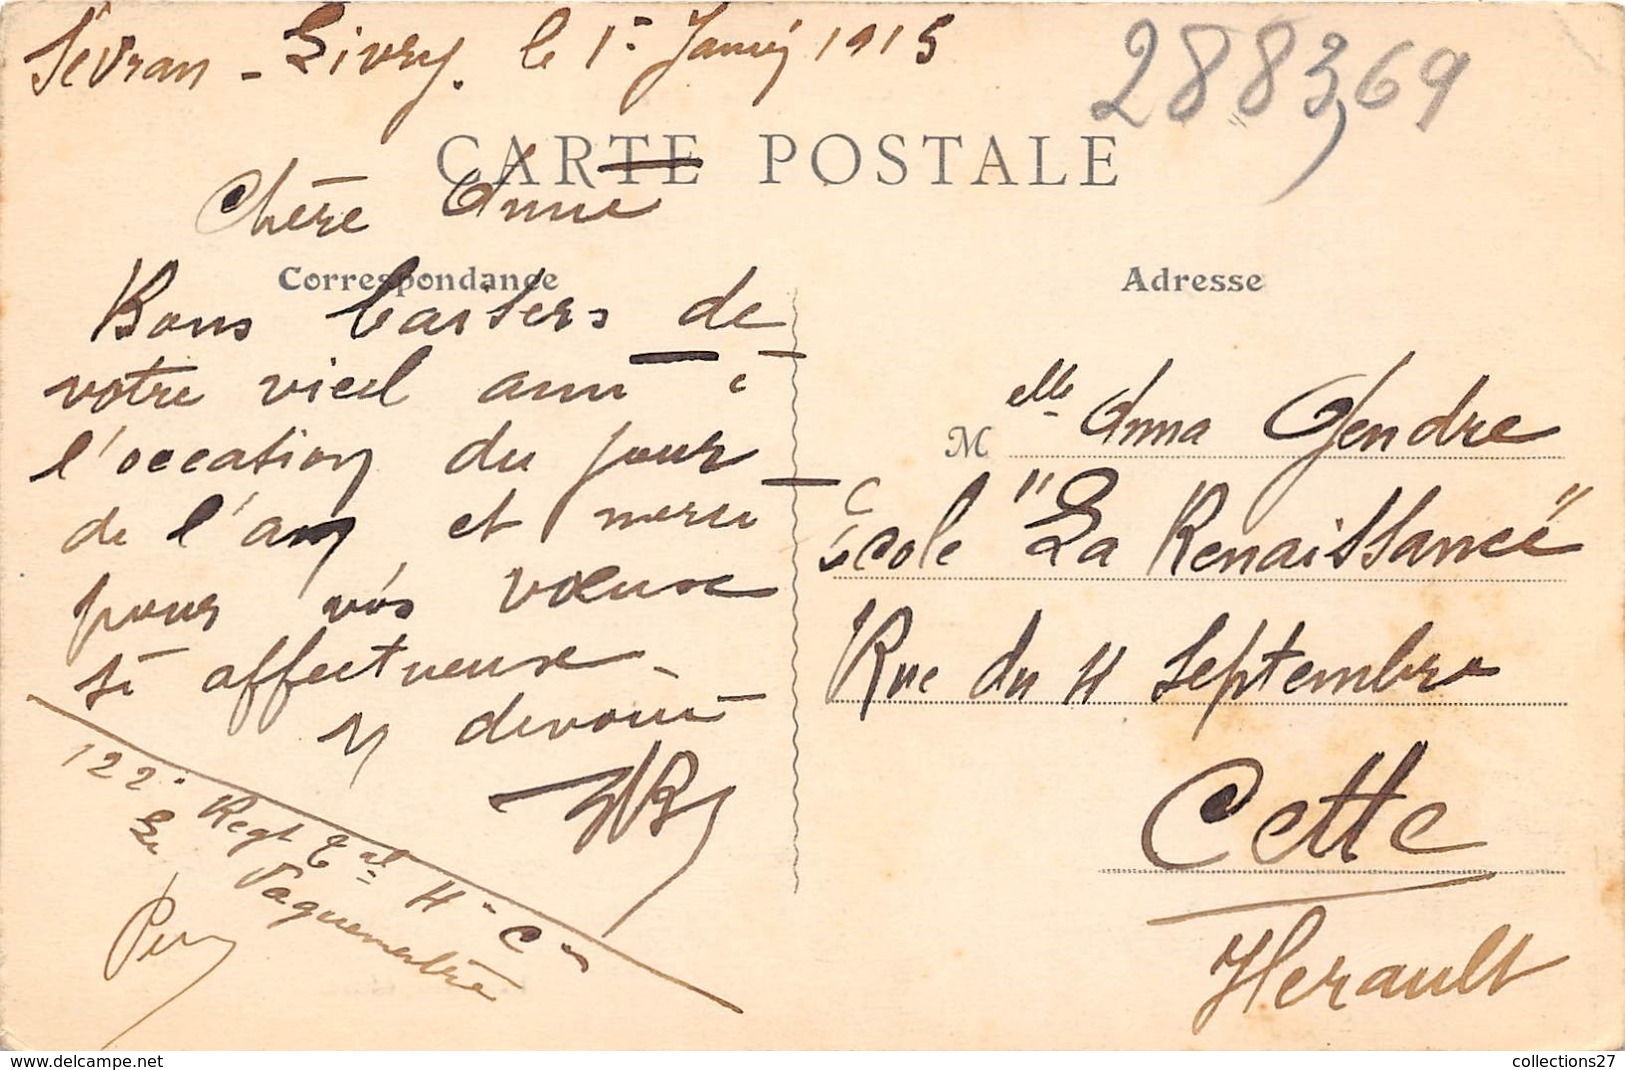 Sévran - Livry. le 1er Janvier 1915
288369
CARTE POSTALE
Chère Anna
Correspondance
Bons baisers de
votre vieil ami à
l'occation du jour
de l'an et merci
pour vos vœuxe
si affectueuse
dévoué
122e Regt tal 4e Cie
Le Vaguemestre
Adresse
Melle Anna Gendre
Ecole "La Renaissance"
Rue du 4 Septembre
Cette
Herault
collections27